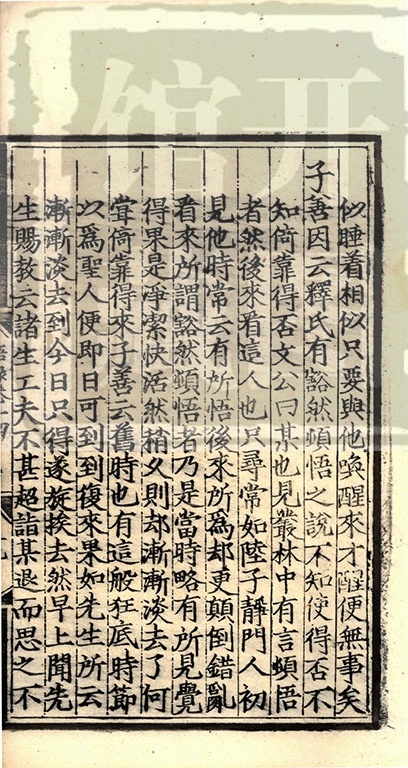 似睡着相似只要與他喚醒來才醒便無事矣
子善因云釋氏有豁然頓悟之說不知使得否不
知倚靠得否文公曰某也見叢林中有言頓悟
者然後來看這人也只尋常如陸子靜門人初
見他時常云有所悟後來所爲却更顛倒錯亂
看來所謂豁然頓悟者乃是當時略有所見覺
得果是淨潔快活然稍久則却漸漸淡去了何
甞倚靠得來子善云舊時也有這般狂底時節
以爲聖人便即日可到到復來果如先生所云
漸漸淡去到今日只得逐旋挨去然早上聞先
生賜教云諸生工夫不甚超詣某退而思之不